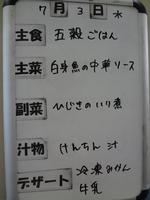 7月3日水
主食 五穀ごはん
主菜 白身魚の中華ソース
副菜 ひじきのいり煮
汁物 けんちん汁
デザート 冷凍みかん
牛乳